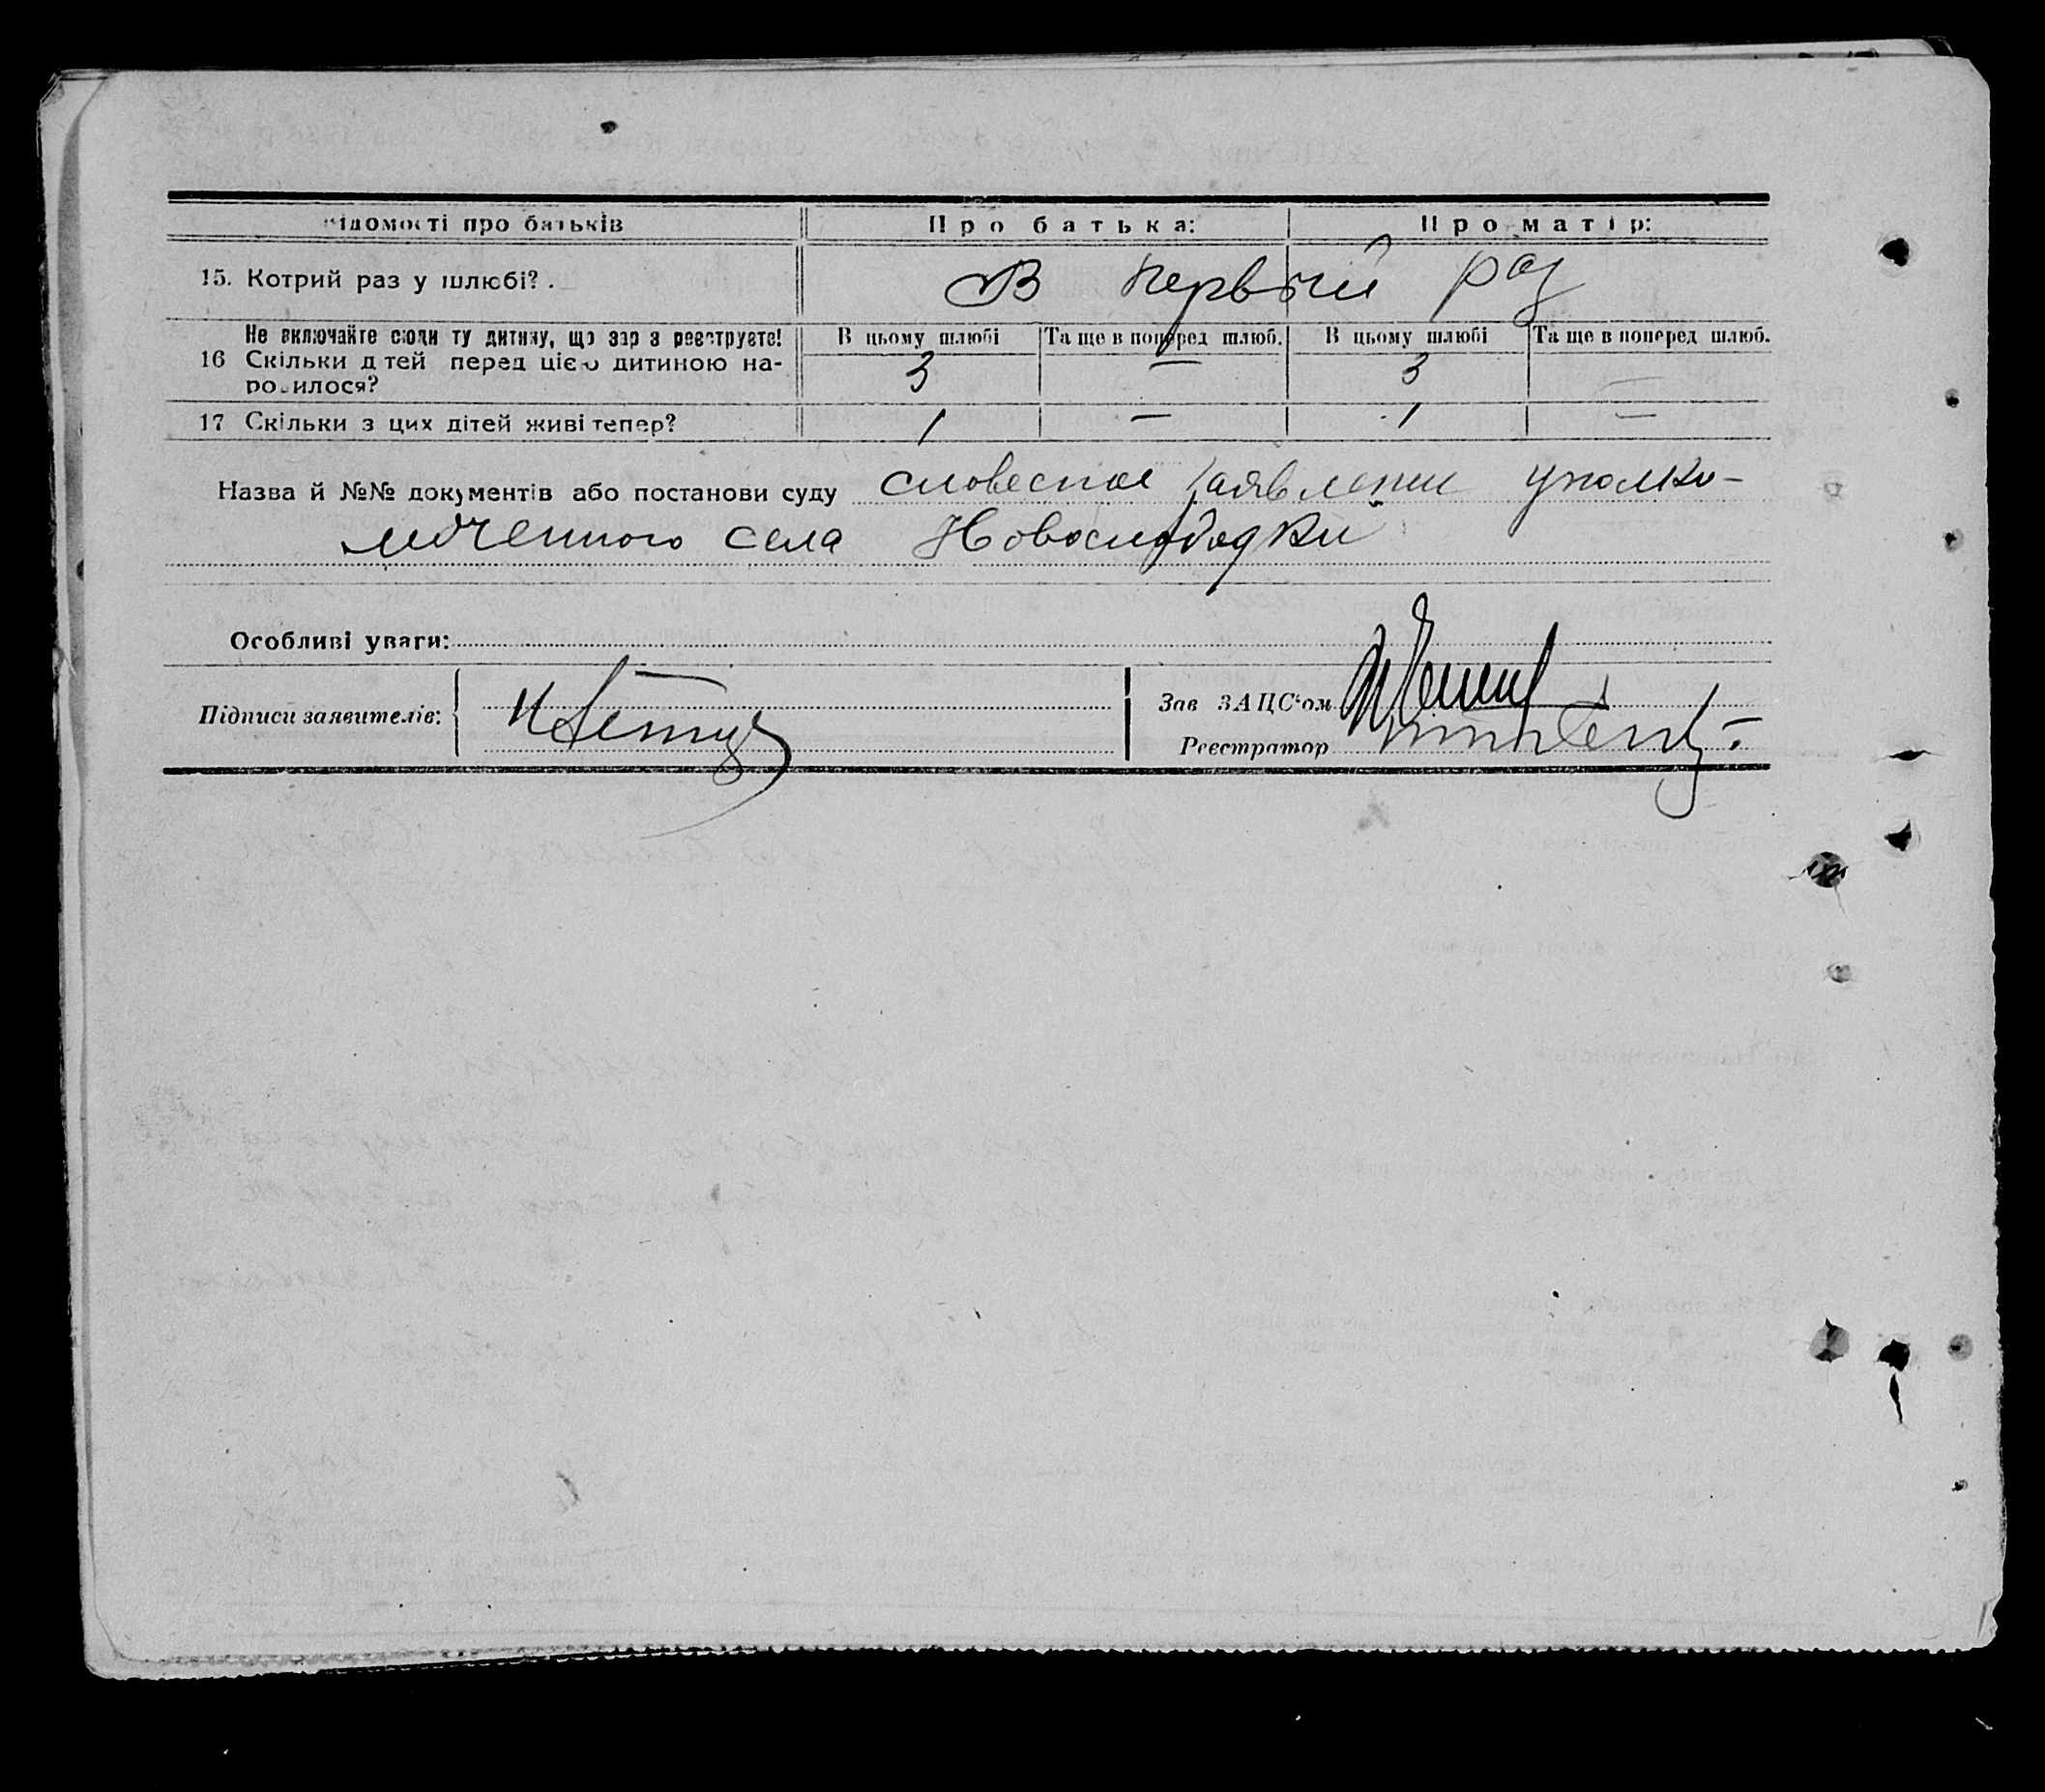 ідомості про батьків Про батька: Про матір:
15. Котрий раз у шлюбі? . В первый раз
Не включайте сюди ту дитину, що зараз реєструєте! В цьому шлюбі Та ще в поперед шлюб. В цьому шлюбі Та ще в поперед шлюб.
16 Скільки дітей перед цією дитиною на- 3 — 3 —
родилося?
17 Скільки з цих дітей живі тепер? 1 — 1 —
Назва й №№ документів або постанови суду словесное заявление уполно-
моченного села Новослободки
Особливі уваги:
Підписи заявителів:
Зав ЗАЦС'ом
Реєстратор